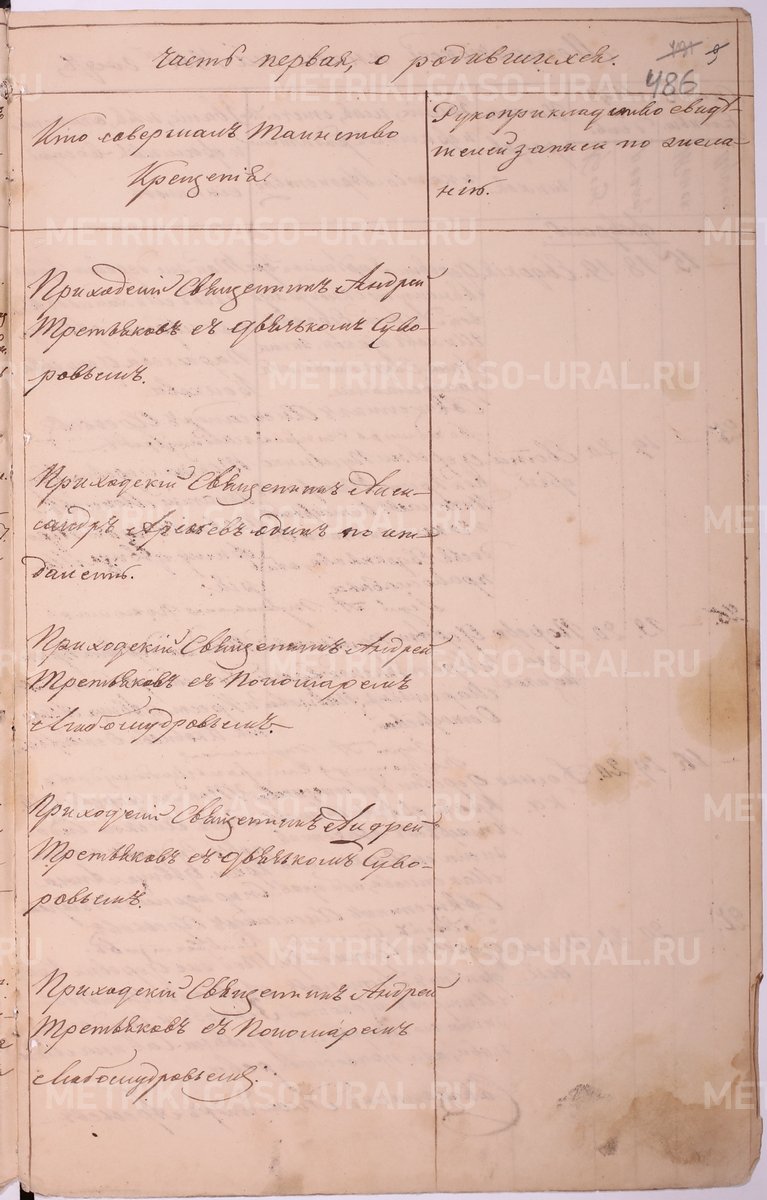 часть первая, о родившихся.
191 5
486
Кто совершалъ таинство
Крещенія.
Рукоприкладство свидѣ-
телей записи по жела-
нію.
Приходскій Священникъ Андрей
Третьяковъ съ дьячькомъ Суво-
ровымъ.
Приходскій Священникъ Алек-
сандръ одинъ по от-
далети.
Приходскій Священникъ Андрей
Третьяковъ съ Пономаремъ
Любомудровымъ.
Приходскій Священникъ Андрей
Третьяковъ съ дьячькомъ Суво-
ровымъ.
Приходскій Священникъ Андрей
Третьяковъ съ Пономаремъ
Любомудровымъ.
METRIKI.GASO-URAL.RU